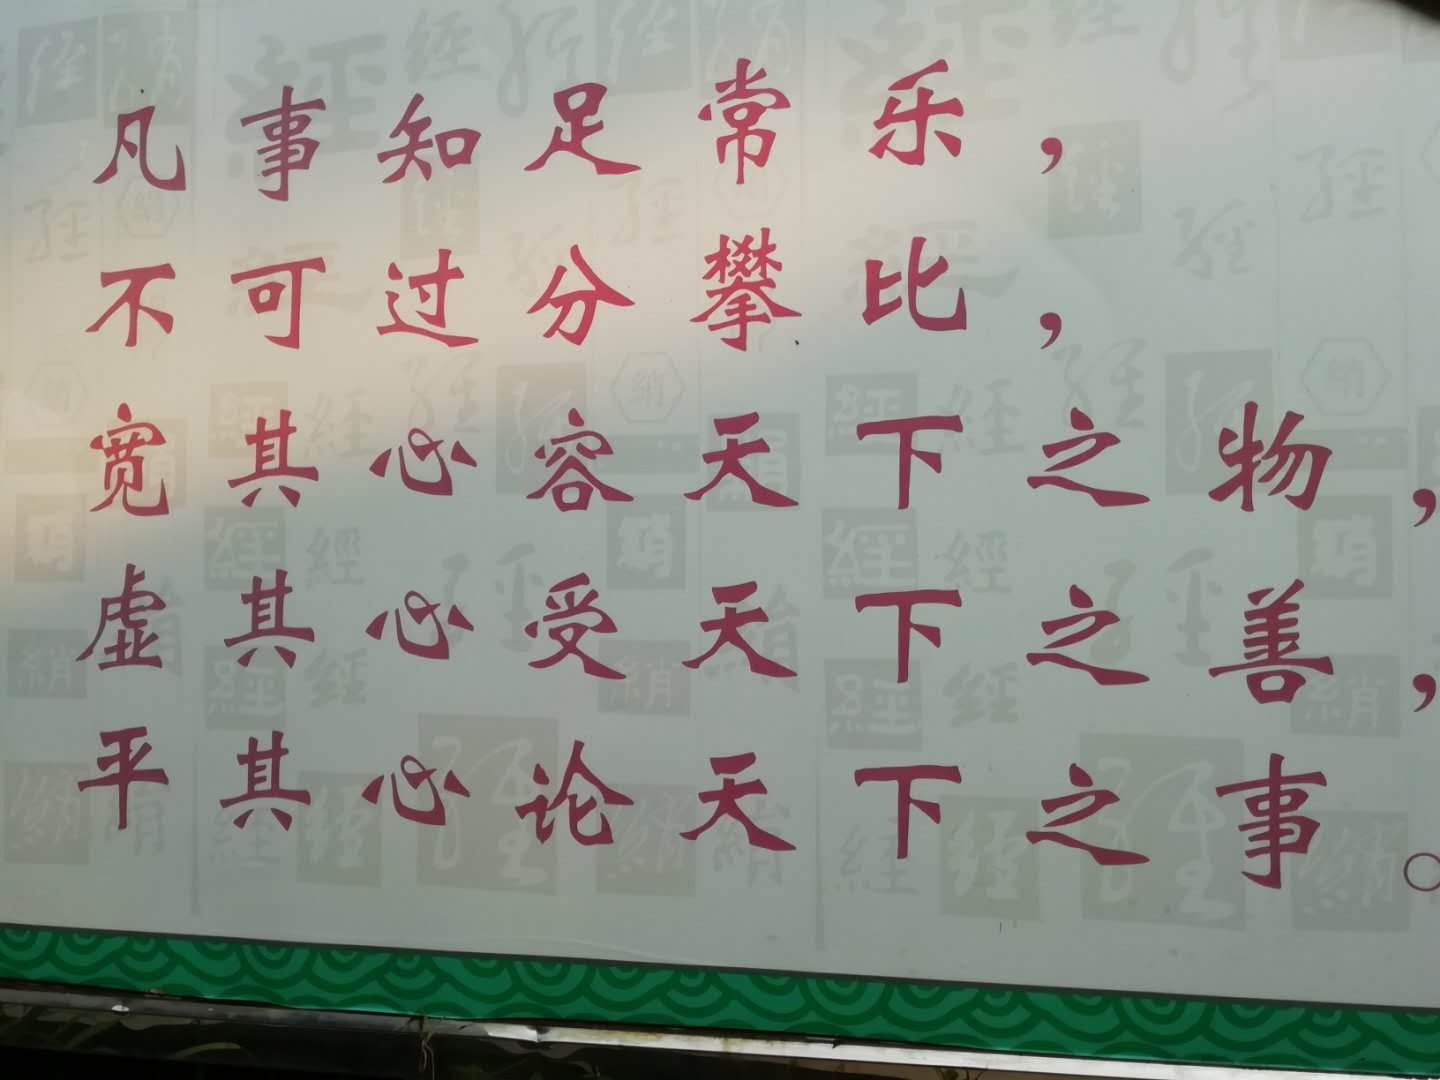 凡事知足常乐，
不可过分攀比，
宽其心容天下之物，
虚其心受天下之善，
平其心论天下之事。